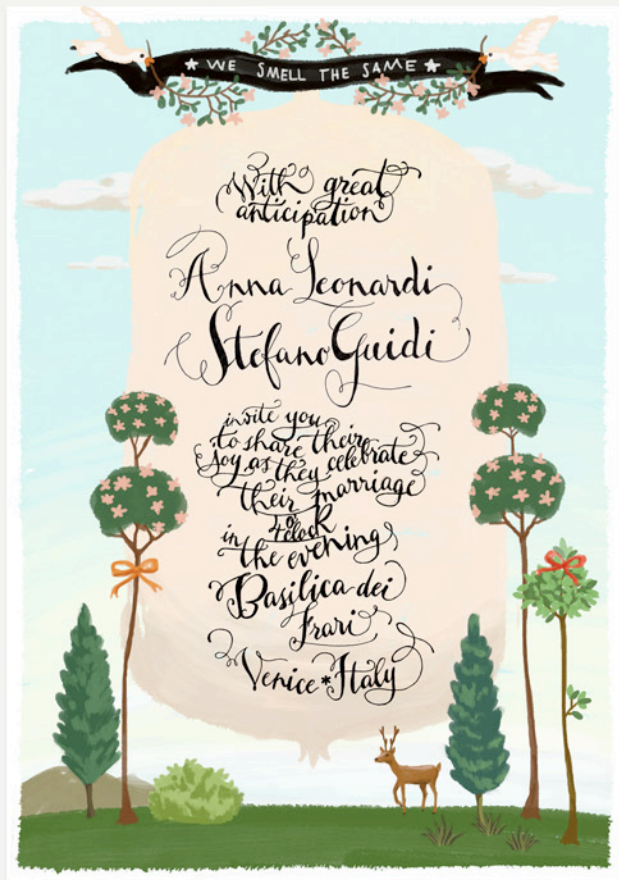 ★ WE SMELL THE SAME ★
With great
anticipation
Anna Leonardi
Stefano Guidi
invite you
to share their
joy as they celebrate
their marriage
4 o'
clock
in
the evening
Basilica dei
Frari
Venice * Italy